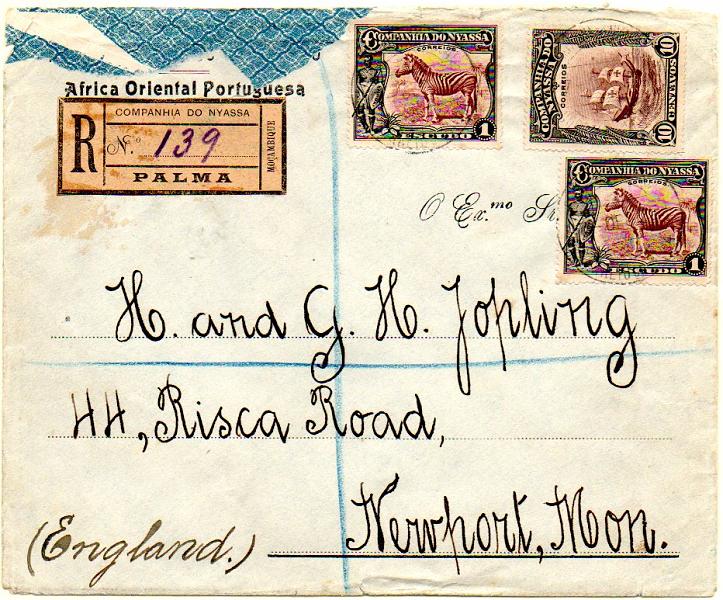 Africa Oriental Portuguesa
R
COMPANHIA DO NYASSA
N.º 139
PALMA
MOÇAMBIQUE
COMPANHIA DO NYASSA
CORREIOS
ESCUDO 1
COMPANHIA DO NYASSA
CORREIOS
10 CENTAVOS 10
COMPANHIA DO NYASSA
CORREIOS
ESCUDO 1
O Ex.mo Sr.
H. and G. H. Jopling
44, Risca Road,
Newport, Mon.
(England.)